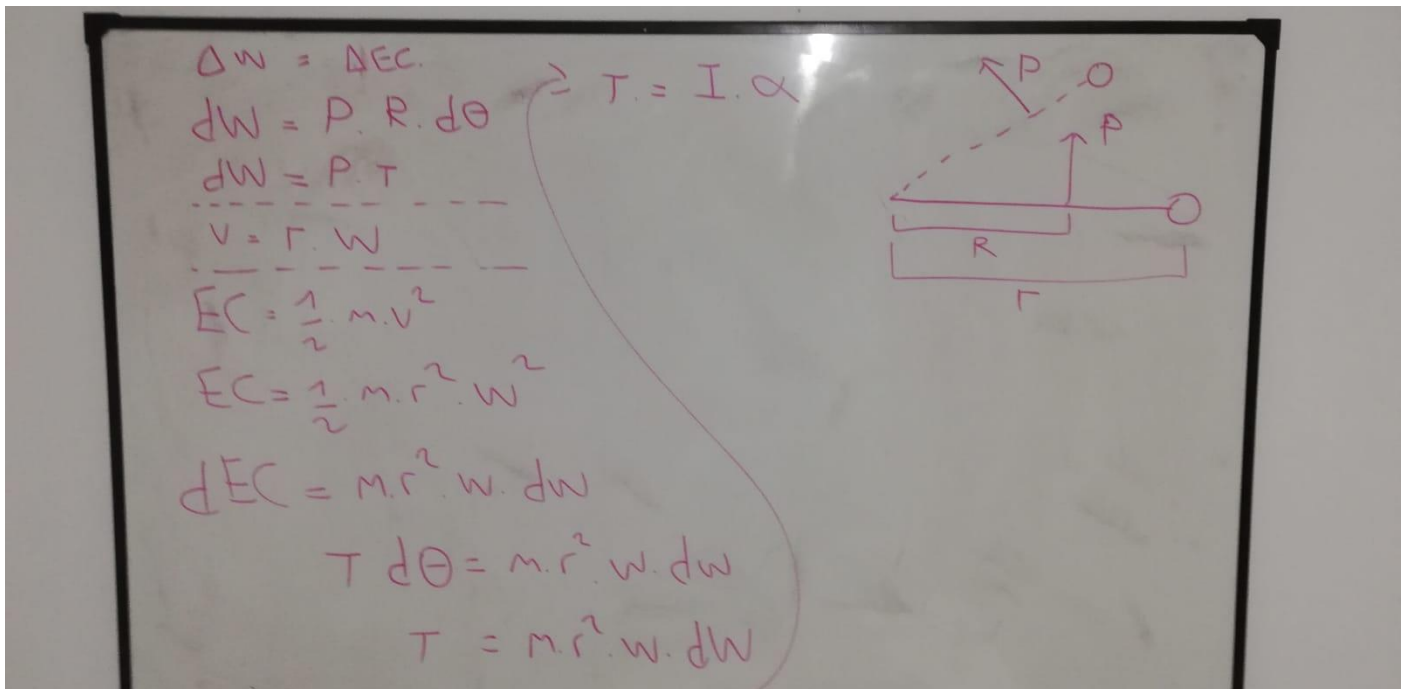 ΔW = ΔEC.
dW = P. R. dθ
dW = P. T
V = r. W
EC = 1/2 m.v²
EC = 1/2 m.r².W²
dEC = m.r².W. dW
T dθ = m.r².W. dW
T = m.r².W. dW
⇒ T. = I. α
P
P
R
r